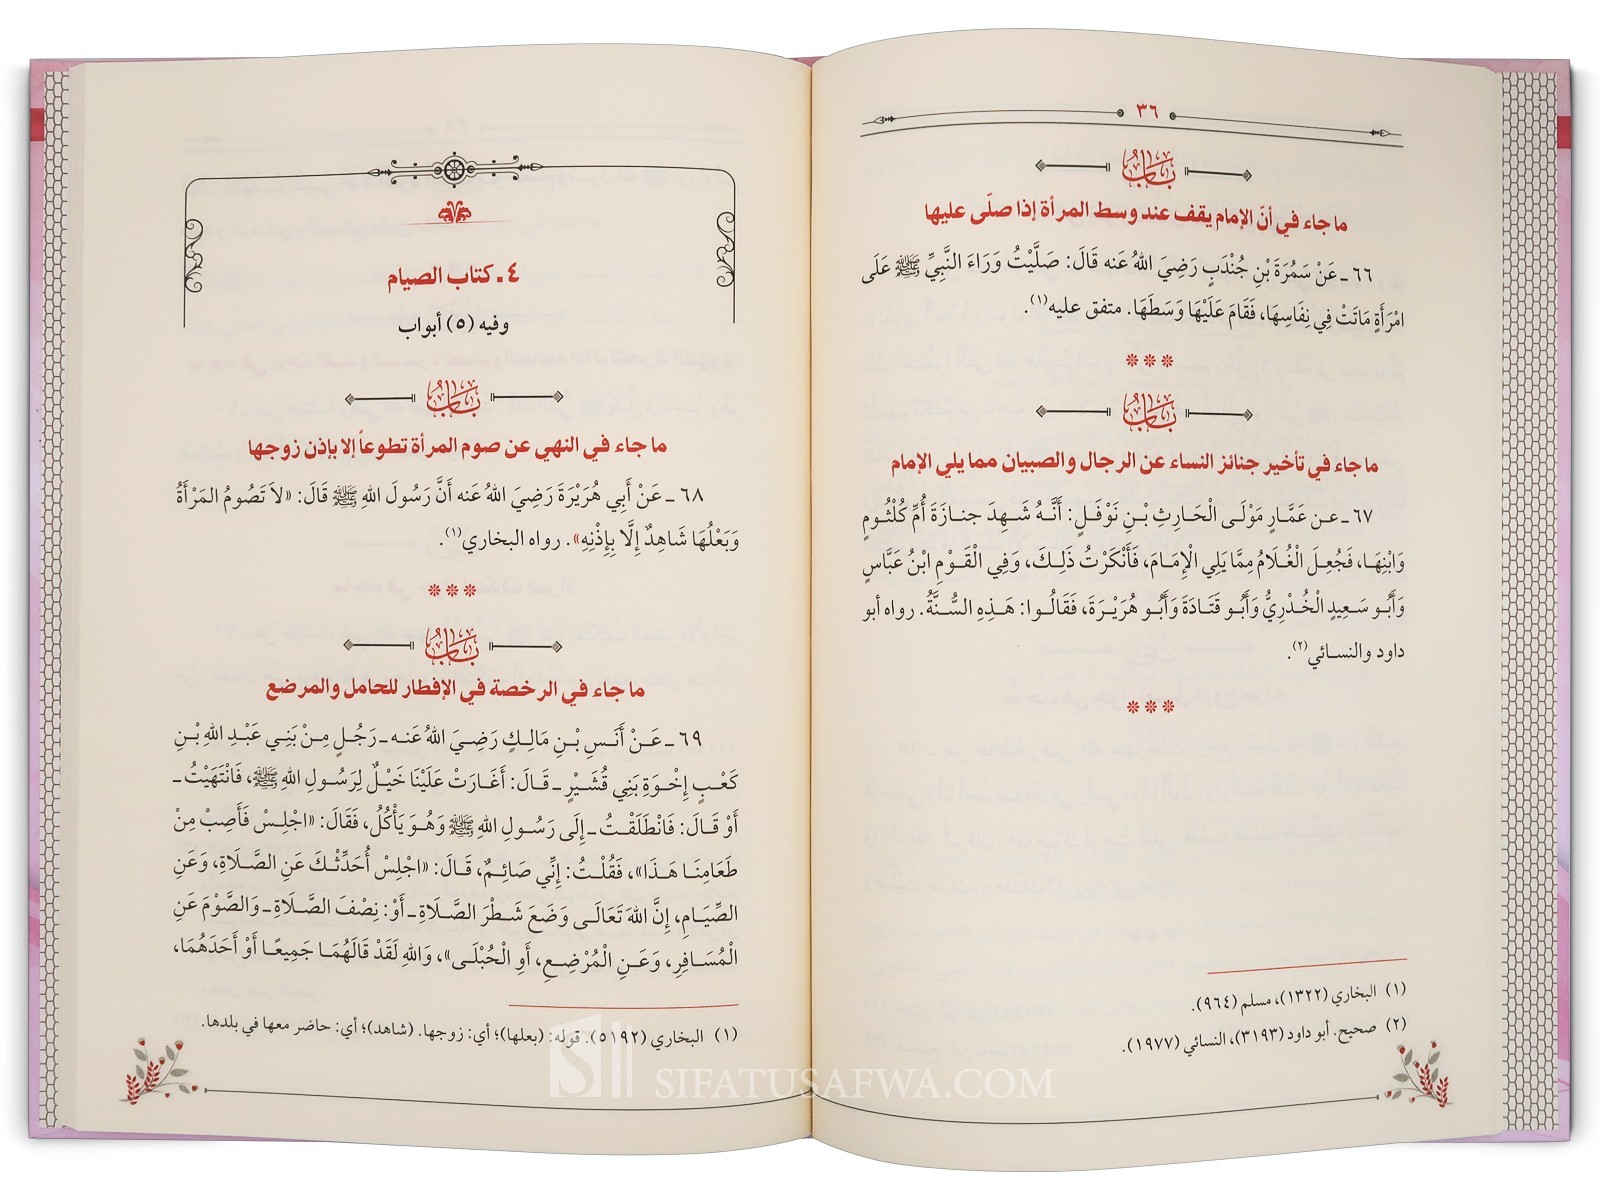 ٣٦
بَابُ
ما جاء في أنّ الإمام يقف عند وسط المرأة إذا صلّى عليها
٦٦ ـ عَنْ سَمُرَةَ بْنِ جُنْدَبٍ رَضِيَ اللهُ عنه قَالَ: صَلَّيْتُ وَرَاءَ النَّبِيِّ ﷺ عَلَى
امْرَأَةٍ مَاتَتْ فِي نِفَاسِهَا، فَقَامَ عَلَيْهَا وَسَطَهَا. متفق عليه(١).
***
بَابُ
ما جاء في تأخير جنائز النساء عن الرجال والصبيان مما يلي الإمام
٦٧ ـ عـن عَمَّـارٍ مَوْلَـى الْحَارِثِ بْـنِ نَوْفَـلٍ: أَنَّـهُ شَـهِدَ جنازَةَ أُمِّ كُلْثُـومٍ
وَابْنِهَـا، فَجُعِـلَ الْغُلَامُ مِمَّا يَلِي الْإِمَامَ، فَأَنْكَرْتُ ذَلِـكَ، وَفِي الْقَوْمِ ابْنُ عَبَّاسٍ
وَأَبُـو سَـعِيدٍ الْخُدْرِيُّ وَأَبُو قَتَادَةَ وَأَبُو هُرَيْـرَةَ، فَقَالُـوا: هَـذِهِ السُّـنَّةُ. رواه أبو
داود والنسـائي(٢).
***
(١) البخاري (١٣٢٢)، مسلم (٩٦٤).
(٢) صحيح. أبو داود (٣١٩٣)، النسائي (١٩٧٧).
٤ ـ كتاب الصيام
وفيه (٥) أبواب
بَابُ
ما جاء في النهي عن صوم المرأة تطوعاً إلا بإذن زوجها
٦٨ ـ عَنْ أَبِي هُرَيْرَةَ رَضِيَ اللهُ عنه أَنَّ رَسُولَ اللهِ ﷺ قَالَ: «لاَ تَصُومُ المَرْأَةُ
وَبَعْلُهَا شَاهِدٌ إِلَّا بِإِذْنِهِ». رواه البخاري(١).
***
بَابُ
ما جاء في الرخصة في الإفطار للحامل والمرضع
٦٩ ـ عَـنْ أَنَـسِ بْـنِ مَالِـكٍ رَضِـيَ اللهُ عَنـه ـ رَجُـلٍ مِـنْ بَنِي عَبْـدِ اللهِ بْـنِ
كَعْـبٍ إِخْـوَةِ بَنِي قُشَيْـرٍ ـ قَـالَ: أَغَارَتْ عَلَيْنَا خَيْـلٌ لِرَسُـولِ اللهِ ﷺ، فَانْتَهَيْتُ ـ
أَوْ قَـالَ: فَانْطَلَقْـتُ ـ إِلَى رَسُـولِ اللهِ ﷺ وَهُـوَ يَأْكُلُ، فَقَالَ: «اجْلِسْ فَأَصِبْ مِنْ
طَعَامِنَـا هَـذَا»، فَقُلْـتُ: إِنِّي صَائِـمٌ، قَـالَ: «اجْلِسْ أُحَدِّثْـكَ عَنِ الصَّـلَاةِ، وَعَنِ
الصِّيَـامِ، إِنَّ اللهَ تَعَالَـى وَضَعَ شَـطْرَ الصَّـلَاةِ ـ أَوْ: نِصْفَ الصَّـلَاةِ ـ وَالصَّوْمَ عَنِ
الْمُسَـافِرِ، وَعَـنِ الْمُرْضِـعِ، أَوِ الْحُبْلَـى»، وَاللهِ لَقَدْ قَالَهُمَـا جَمِيعًـا أَوْ أَحَدَهُمَا،
(١) البخاري (٥١٩٢). قوله: (بعلها)؛ أي: زوجها. (شاهد)؛ أي: حاضر معها في بلدها.
SIFATUSAFWA.COM